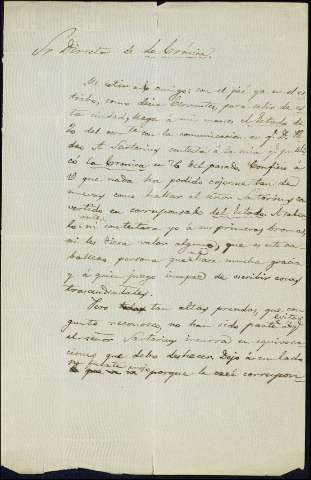 Sr Director de la Crónica.
Mi estimado amigo: con el pié ya en el es
tribo, como decia Cervantes, para salir de es
ta ciudad, llega á mis manos el Estado de
20 del corrte con la comunicacion en qe D.
A. Sartorius contesta á la mia qe publi
có la Crónica en 16 del pasado. Confieso á
V que nada ha podido cojerme tan de
nuevas como hallar al señor Sartorius con
vertido en corresponsal del Estado. A saber
lo, ni contestara yo á sus primeras bromas,
ni les diera valor alguno, que es este ca
ballero persona que me hace mucha gracia
y á quien juzgo incapaz de escribir cosas
trascendentales.
Pero tan altas prendas, que con
gusto reconozco, no han sido parte á evitar qe
el señor Sartorius incurra en equivoca
ciones que debo deshacer. Dejo á un lado
porque la casé correspon